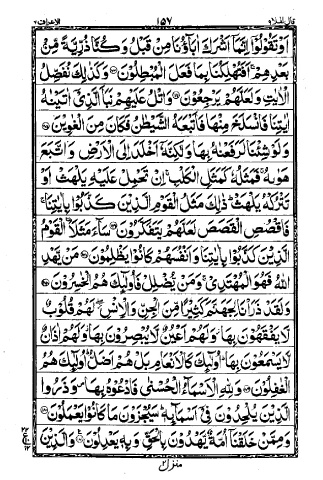 قال الملأ ۹ ۱۵۷ الاعراف ۷
اَوْ تَقُوْلُوْۤا اِنَّمَاۤ اَشْرَكَ اٰبَآؤُنَا مِنْ قَبْلُ وَكُنَّا ذُرِّیَّةً مِّنْۢ
بَعْدِهِمْ ۚ اَفَتُهْلِكُنَا بِمَا فَعَلَ الْمُبْطِلُوْنَ وَكَذٰلِكَ نُفَصِّلُ
الْاٰیٰتِ وَلَعَلَّهُمْ یَرْجِعُوْنَ وَاتْلُ عَلَیْهِمْ نَبَاَ الَّذِیْۤ اٰتَیْنٰهُ
اٰیٰتِنَا فَانْسَلَخَ مِنْهَا فَاَتْبَعَهُ الشَّیْطٰنُ فَكَانَ مِنَ الْغٰوِیْنَ
وَلَوْ شِئْنَا لَرَفَعْنٰهُ بِهَا وَلٰكِنَّهٗۤ اَخْلَدَ اِلَی الْاَرْضِ وَاتَّبَعَ
هَوٰىهُ ۚ فَمَثَلُهٗ كَمَثَلِ الْكَلْبِ ۚ اِنْ تَحْمِلْ عَلَیْهِ یَلْهَثْ اَوْ
تَتْرُكْهُ یَلْهَثْ ؕ ذٰلِكَ مَثَلُ الْقَوْمِ الَّذِیْنَ كَذَّبُوْا بِاٰیٰتِنَا ۚ
فَاقْصُصِ الْقَصَصَ لَعَلَّهُمْ یَتَفَكَّرُوْنَ سَآءَ مَثَلَا ۟الْقَوْمُ
الَّذِیْنَ كَذَّبُوْا بِاٰیٰتِنَا وَاَنْفُسَهُمْ كَانُوْا یَظْلِمُوْنَ مَنْ یَّهْدِ
اللّٰهُ فَهُوَ الْمُهْتَدِیْ ۚ وَمَنْ یُّضْلِلْ فَاُولٰٓئِكَ هُمُ الْخٰسِرُوْنَ
وَلَقَدْ ذَرَاْنَا لِجَهَنَّمَ كَثِیْرًا مِّنَ الْجِنِّ وَالْاِنْسِ ۖ لَهُمْ قُلُوْبٌ
لَّا یَفْقَهُوْنَ بِهَا ؗ وَلَهُمْ اَعْیُنٌ لَّا یُبْصِرُوْنَ بِهَا ؗ وَلَهُمْ اٰذَانٌ
لَّا یَسْمَعُوْنَ بِهَا ؕ اُولٰٓئِكَ كَالْاَنْعَامِ بَلْ هُمْ اَضَلُّ ؕ اُولٰٓئِكَ هُمُ
الْغٰفِلُوْنَ وَلِلّٰهِ الْاَسْمَآءُ الْحُسْنٰی فَادْعُوْهُ بِهَا ۪ وَذَرُوا
الَّذِیْنَ یُلْحِدُوْنَ فِیْۤ اَسْمَآىِٕهٖ ؕ سَیُجْزَوْنَ مَا كَانُوْا یَعْمَلُوْنَ
وَمِمَّنْ خَلَقْنَاۤ اُمَّةٌ یَّهْدُوْنَ بِالْحَقِّ وَبِهٖ یَعْدِلُوْنَ وَالَّذِیْنَ
منزل ۲